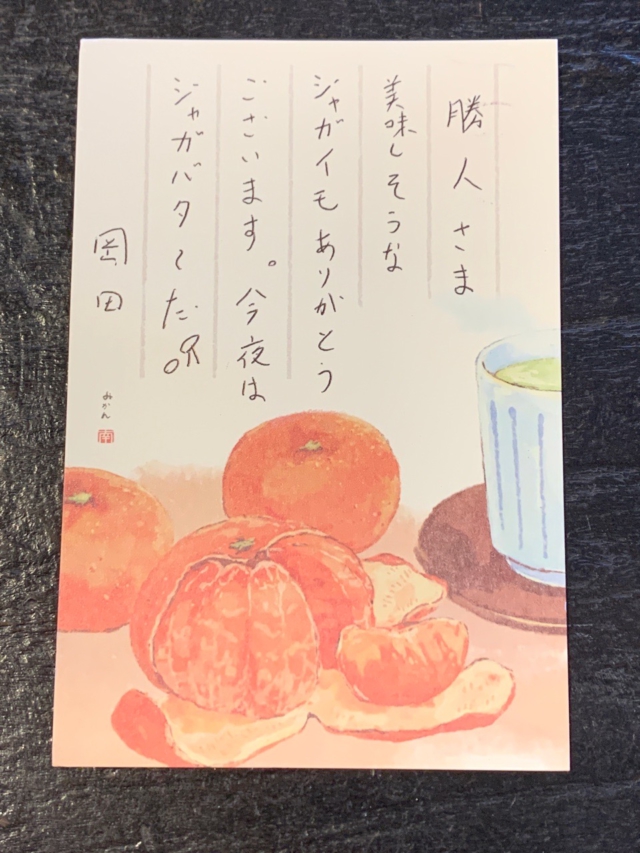 勝人さま
美味しそうな
ジャガイモありがとう
ございます。今夜は
ジャガバターだ
岡田
みかん